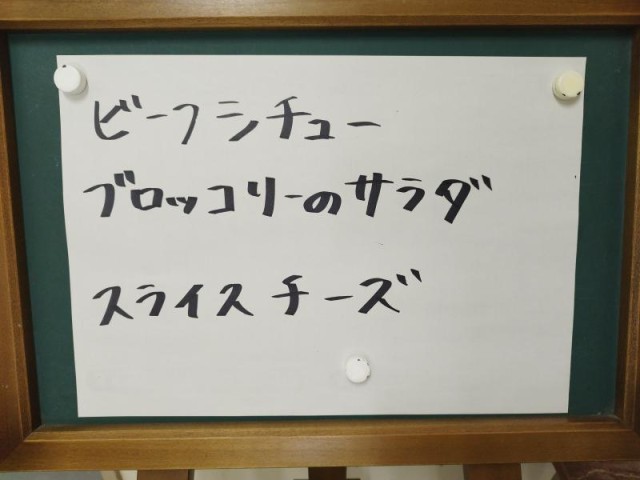 ビーフシチュー
ブロッコリーのサラダ
スライスチーズ